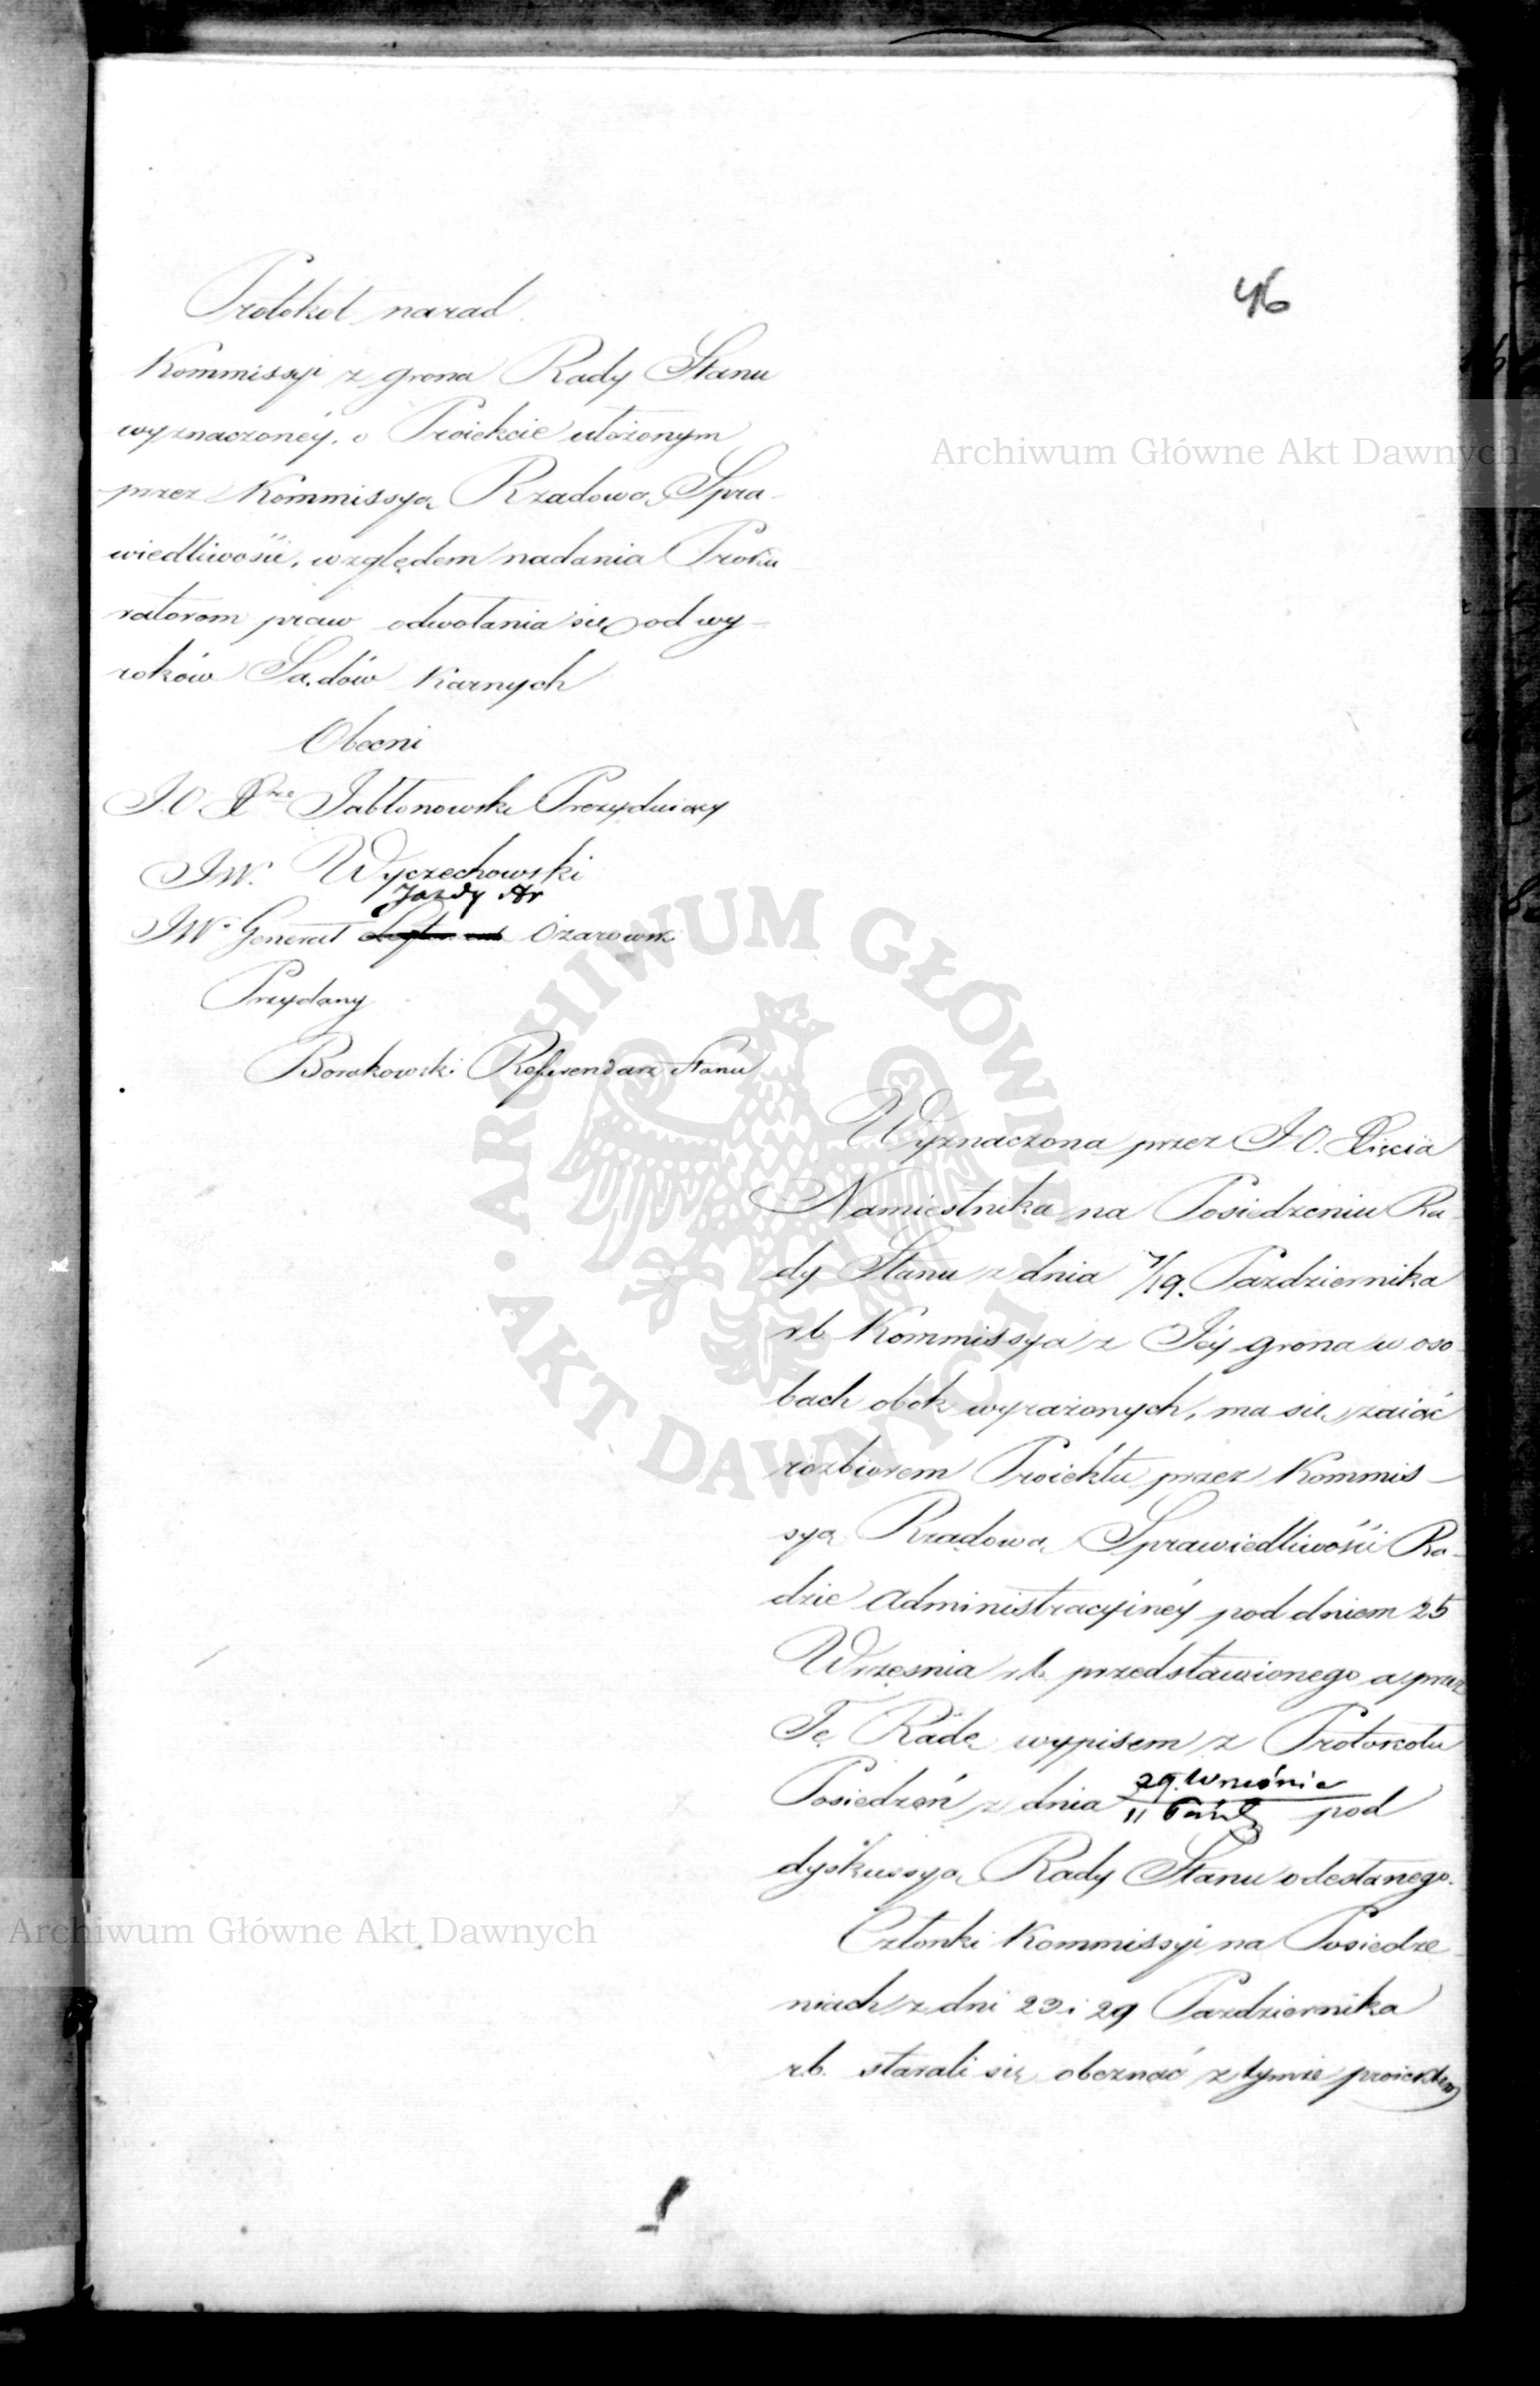 46
Protokół narad
Kommissyi z grona Rady Stanu
wyznaczonéy, o Proiekcie ułożonym
przez Kommissyą Rządową Spra-
wiedliwości, względem nadania Proku
ratorom praw odwołania się od wy-
roków Sądów Karnych
Obecni
J.O. Xże Jabłonowski Prezyduiący
JW. Wyczechowski
Jazdy
JW. Generał Ożarowski
Przydany
Borakowski Referendarz Stanu
Wyznaczona przez J.O. Xięcia
Namiestnika na Posiedzeniu Ra-
dy Stanu z dnia 7/19. Pazdziernika
r.b. Kommissya z Jéy grona w oso
bach obok wyrażonych, ma się zaiąć
rozbiorem Proiektu przez Kommis-
syą Rządową Sprawiedliwości Ra-
dzie Administracyinéy pod dniem 25
Września r.b. przedstawionego a przez
Tę Radę wypisem z Protokołu
Posiedzeń z dnia 29. Września / 11 Paźdz pod
dyskussyą Rady Stanu odesłanego.
Członki Kommissyi na Posiedze
niach z dni 23 i 29 Pazdziernika
r.b. starali się obeznać z tymże proiektem
Archiwum Główne Akt Dawnych
Archiwum Główne Akt Dawnych
ARCHIWUM GŁÓWNE AKT DAWNYCH